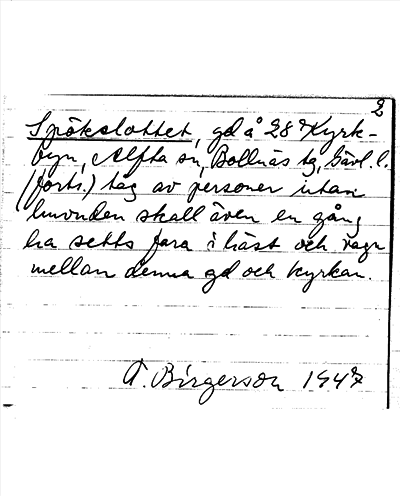 2
Spökslottet, gd å 28² Kyrk-
byn, Alfta sn, Bollnäs tg, Gävl. l.
(forts.) tag av personer utan
huvuden skall även en gång
ha setts fara i häst och vagn
mellan denna gd och kyrkan.
A. Birgerson 1947